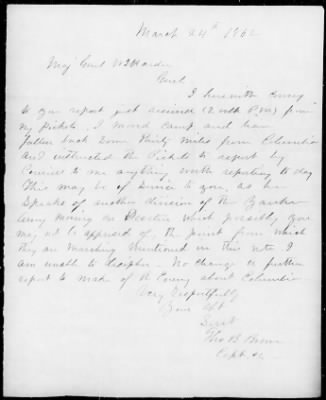 March 24th 1862
Maj Genl W J Hardee
Genl
I herewith convey
to you report just received (2 oclk P.M) from
my Pickets, I moved camp, and have
fallen back some thirty miles from Columbia
and instructed the Pickets to report by
Courier to me anything worth reporting to day
This may be of service to you, as he
Speaks of another division of the Yankee
Army moving on Decatur which possibly you
may not be apprised of, the point from which
they are marching mentioned in this note I
am unable to decipher. No change or further
report is made of the Enemy about Columbia
Very Respectfully
Your Obt
Servt
Thos B
Capt &c